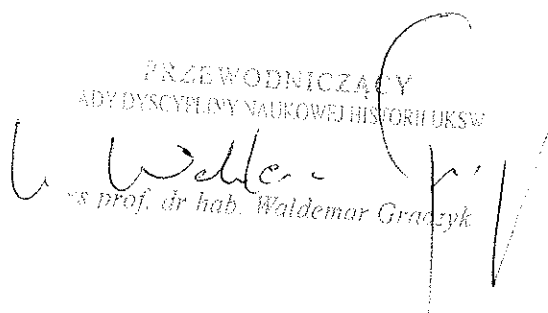 PRZEWODNICZĄCY
ADY DYSCYPLINY NAUKOWEJ HISTORII UKSW
s prof. dr hab. Waldemar Graczyk